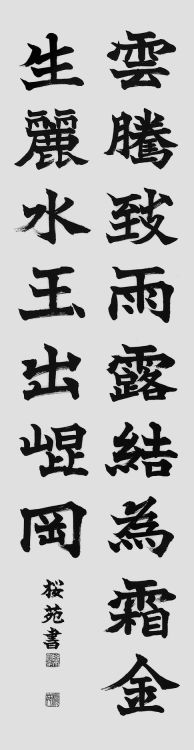 雲騰致雨露結為霜金
生麗水玉出崐岡
桜苑書